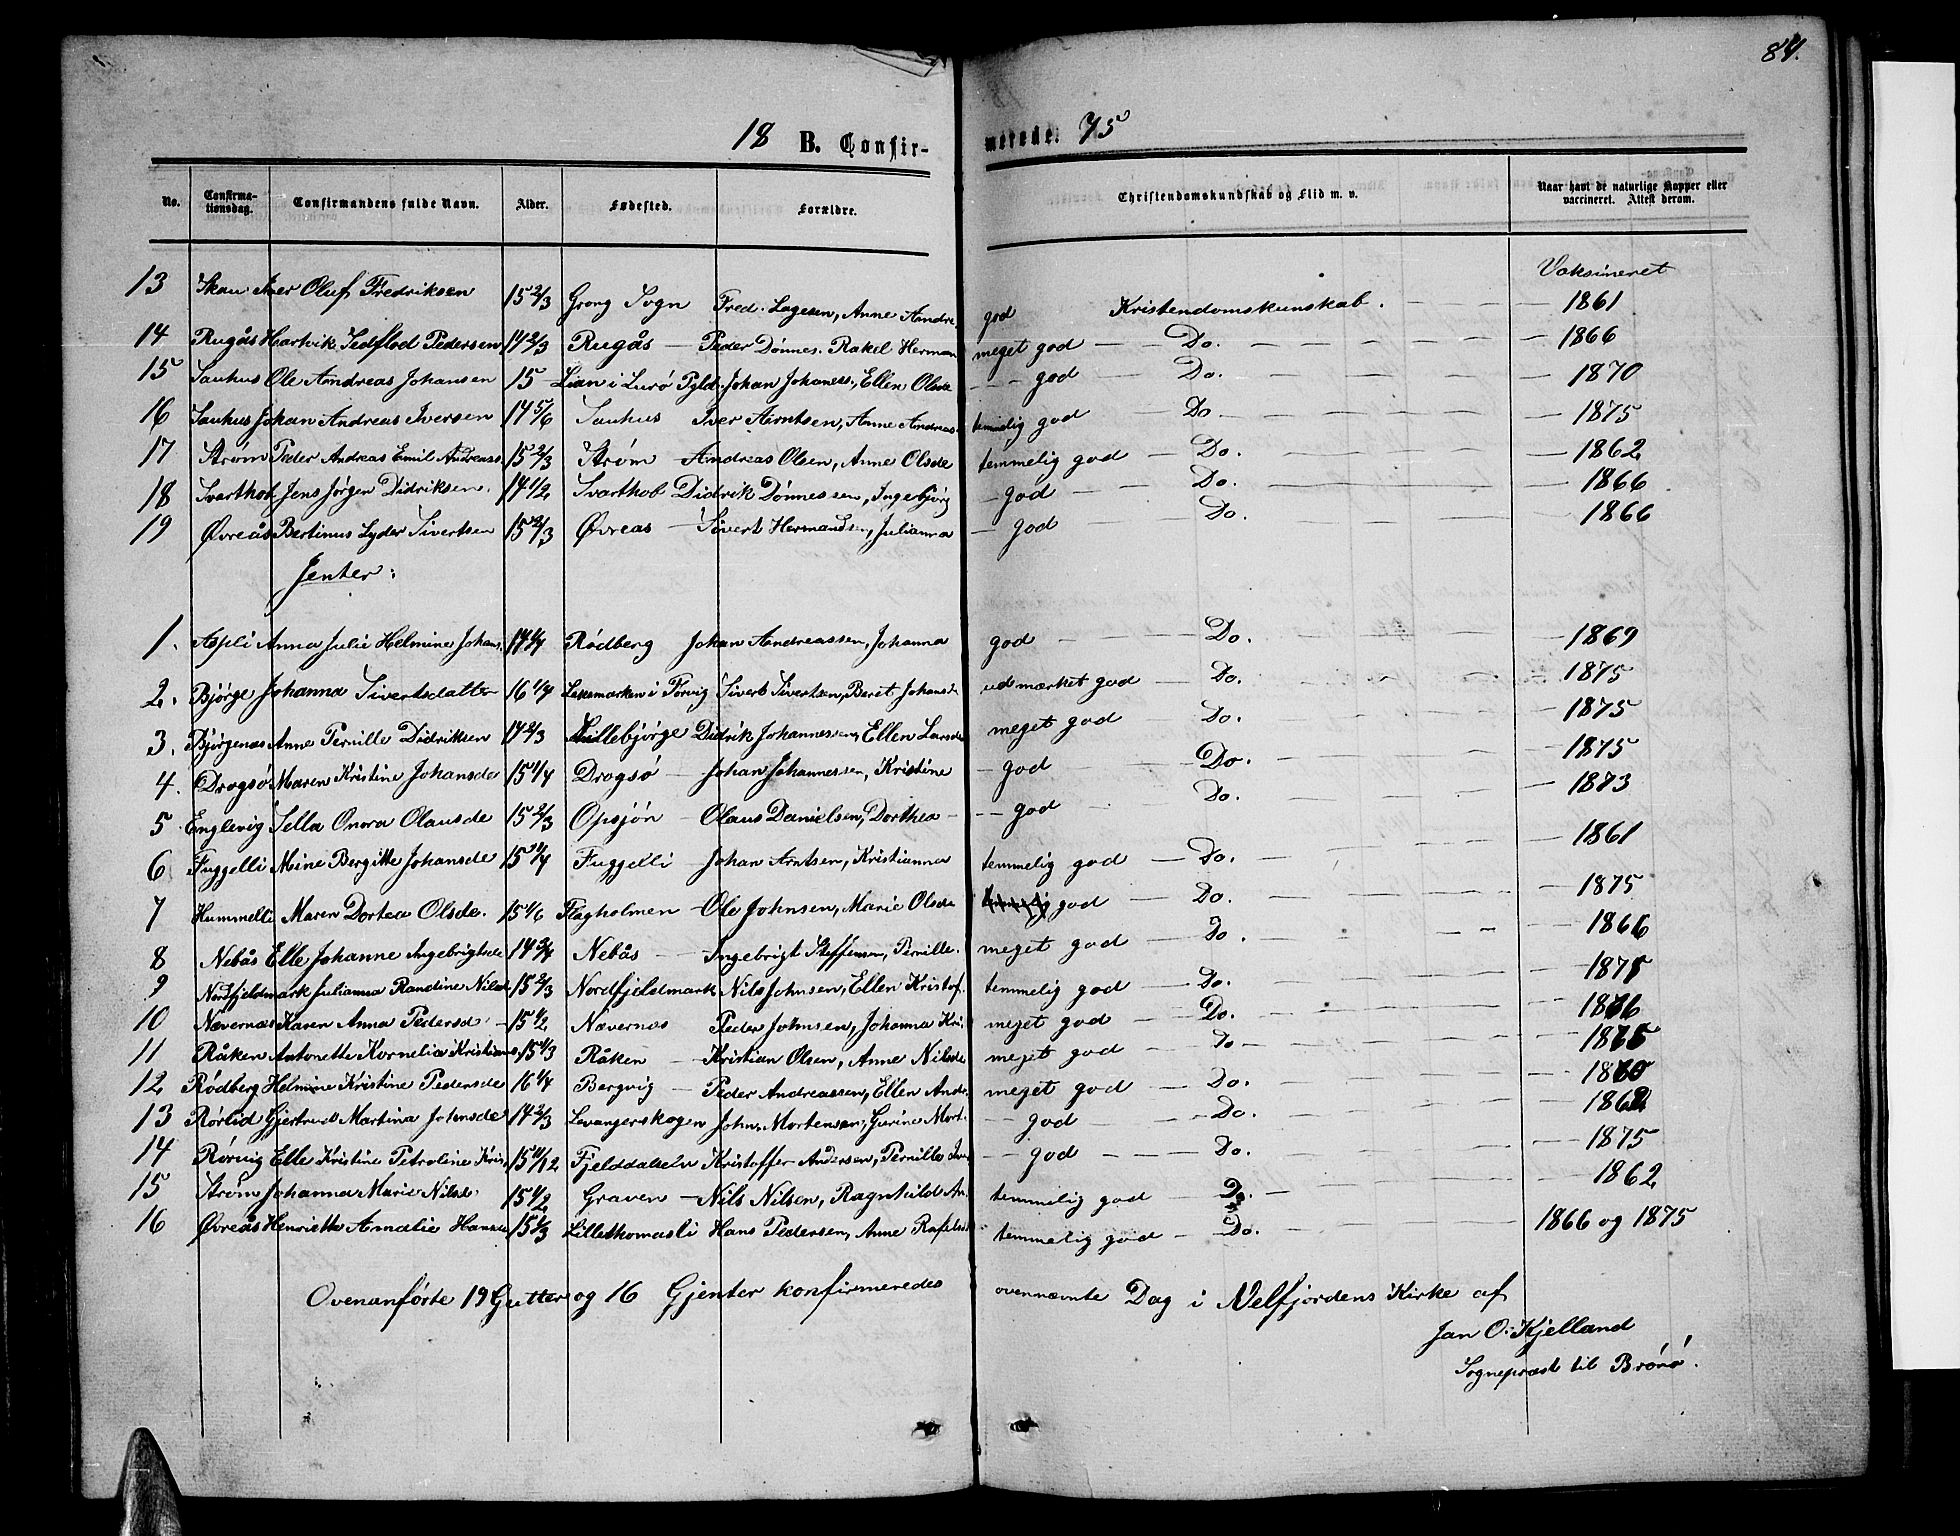 84.
18 B. Confirmerede. 75
No. Confirmationsdag. Confirmandens fulde Navn. Alder. Fødested. Forældre. Christendomskundskab og Flid m. v. Naar havt de naturlige Kopper eller vaccineret. Attest derom.
Vaksineret
13 Skau Iver Oluf Fredriksen 15 2/3 Grong Sogn Fred. Lagesen, Anne Andre. god Kristendomskunskab. — 1861
14 Rugås Hartvik Pedersen 14 2/3 Rugås — Peder Dønnes. Rakel Herman meget god — Do. — 1866
15 Sauhus Ole Andreas Johansen 15 Lian i Lurø Pgld. Johan Johaness, Ellen Olsde — god Do. — 1870
16 Sauhus Johan Andreas Iversen 14 5/6 Sauhus Iver Arntsen, Anne Andreas. temmelig god Do. — 1875
17 Strøm Peder Andreas Emil Andreass. 15 2/3 Strøm — Andreas Olsen, Anne Olsde temmelig god — Do. — 1862
18 Svarthob Jens Jørgen Didriksen. 14 1/2 Svarthob Didrik Dønnessen, Ingebjørg — god — Do. — 1866
19 Øvreås Bertinus Lyder Sivertsen 15 2/3 Øvreås — Sivert Hermandsen, Julianna — god Do. — 1866
Jenter:
1. Aspli Anna Julie Helmine Johans. 14 1/4 Rødberg Johan Andreassen, Johanna god — Do. — 1869
2. Bjørge Johanna Sivertsdatter 16 1/4 i Forvig Sivert Sivertsen, Beret Johansd udmærket god — Do. — 1875
3. Bjørgenæs Anne Pernille Didriksen 14 2/3 Lillebjørge Didrik Johannessen, Ellen Larsde meget god Do. — 1875
4. Drogsø Maren Kristine Johansde 15 1/4 Drogsø — Johan Johannessen, Kristine — god — Do. — 1875
5 Englevig Sella Onora Olausde 15 2/3 Opsjøn — Olaus Danielsen, Dorthea — — god — Do. — 1873
6 Fuggelli Mine Bergitte Johansde 15 1/4 Fuggelli — Johan Arntsen, Kristianna temmelig god — Do. — 1861
7 Hummelli Maren Dortea Olsde. 15 1/6 Flagholmen — Ole Johnsen, Marie Olsde god — Do. — 1875
8 Nebås Elle Johanne Ingebrigtsde 14 3/4 Nebås — Ingebrigt Steffensen, Pernille. meget god — Do — 1866
9 Nordfjeldmark Julianna Randine Nilsd. 15 2/3 Nordfjeldmark Nils Johnsen, Ellen Kristof. temmelig god — Do. — 1875
10 Nævernæs Karen Anna Pedersd. 15 1/2 Nævernæs Peder Johnsen, Johanna Kri. meget god — Do. — 1866
11 Råken Antonette Kornelia Kristians. 15 1/3 Råken — Kristian Olsen, Anne Nilsde meget god — Do — 1865
12 Rødberg Helmine Kristine Pedersde 16 1/4 Bergvig — Peder Andreassen, Ellen Andr. meget god — Do. — 1860
13 Rørlid Gjertrud Martina Johnsde 14 2/3 Levangerskogen John Mortensen, Gurine Mort. — god — Do. — 1862
14 Rørvig Elle Kristine Petroline Kris. 15 11/12 Fjelddalen Kristoffer Andersen, Pernille — god — Do. — 1875
15 Strøm Johanna Marie Nilsd. 15 1/2 Graven — Nils Nilsen, Ragnhild An. temmelig god Do. — 1862
16 Øvreås Henriette Amalie Hansde 15 1/3 Lillethomasli Hans Pedersen, Anne Rafels temmelig god — Do. — 1866 og 1875
Ovenanførte 19 Gutter og 16 Gjenter konfirmeredes ovennævnte Dag i Velfjordens Kirke af
Jan O. Kjelland
Sogneprest til Brønø.